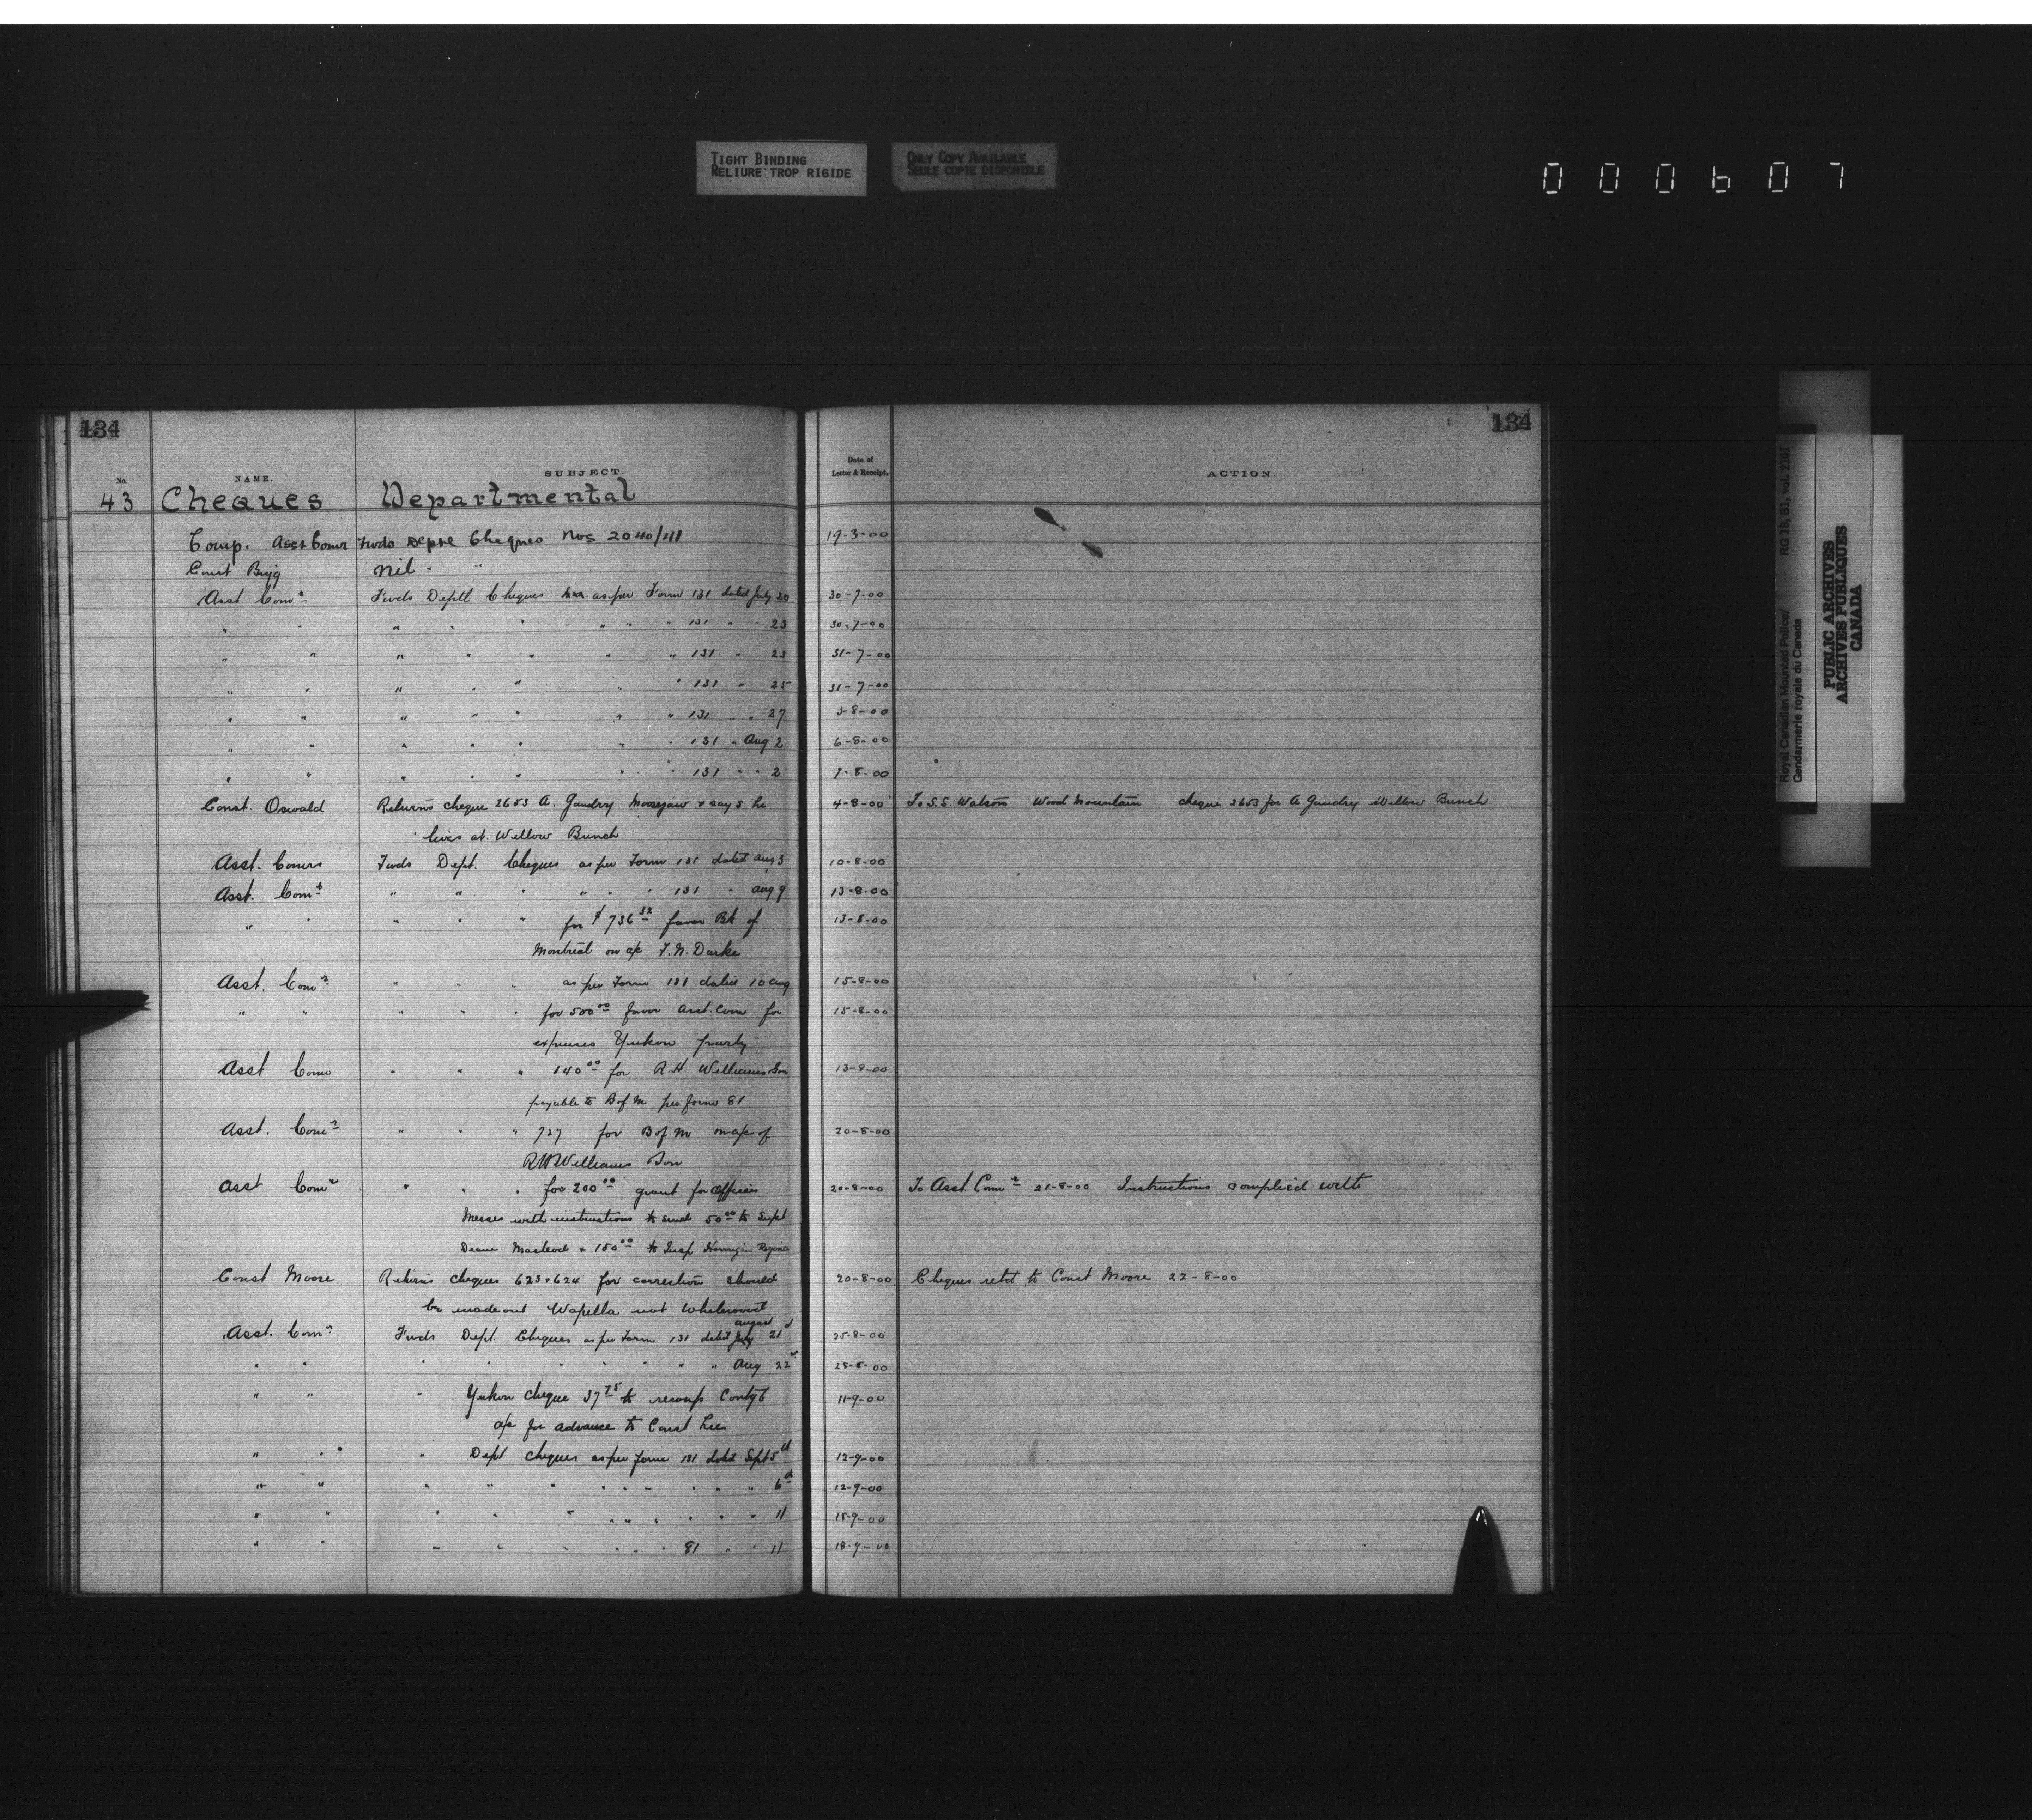 TIGHT BINDING
RELIURE TROP RIGIDE
ONLY COPY AVAILABLE
SEULE COPIE DISPONIBLE
000607
134
134
No. NAME. SUBJECT. Date of Letter & Receipt. ACTION
43 Cheques Departmental
Comp. Asst Comr Fwds Depte Cheques Nos 2040/41 19-3-00
Const Nil " "
Asst. Comr Fwds Deptl Cheques as per Form 131 dated July 20 30-7-00
" " " " " " " " 131 " " 23 30-7-00
" " " " " " " 131 " 23 31-7-00
" " " " " " " 131 " 25 31-7-00
" " " " " " " 131 " " 27 3-8-00
" " " " " " " 131 " Aug 2 6-8-00
" " " " " " " 131 " " 2 7-8-00
Const. Oswald Returns cheque 2653 A. Gaudry Moosejaw & says he 4-8-00 To S.S. Watson Wood Mountain cheque 2653 for A Gaudry Willow Bunch
lives at Willow Bunch
Asst. Comrs Fwds Dept. Cheques as per Form 131 dated Aug 3 10-8-00
Asst. Comr " " " " " " 131 " Aug 9 13-8-00
" " " " " for $736 32 favor Bk of 13-8-00
Montreal on a/c F.N. Darke
Asst. Comr " " " as per Form 131 dated 10 Aug 15-8-00
" " " " " for 500 00 favor Asst. Com for 15-8-00
expenses Yukon party
Asst Comr " " " 140 00 for R.H Williams Son 13-8-00
payable to B of M per form 81
Asst. Comr " " " 727 for B of M on a/c of 20-8-00
RH Williams Son
Asst Comr " " " for 200 00 grant for Officers 20-8-00 To Asst. Comr 21-8-00 Instructions complied with
Messes with instructions to send 50 00 to Supt
Deane Macleod & 150 00 to Insp Regina
Const Moore Returns cheques 623 & 624 for correction should 20-8-00 Cheques retd to Const Moore 22-8-00
be made out Wapella not Whitewood
august
Asst. Comr Fwds Dept. Cheques as per Form 131 dated July 21st 25-8-00
" " " " " " " " " Aug 22 25-8-00
" " " Yukon cheque 37 75 to recoup Contgt 11-9-00
a/c for advance to Const Lee
" " " Dept cheques as per form 131 dated Sept 5th 12-9-00
" " " " " " " " " " " 6th 12-9-00
" " " " " " " " " " " 11 15-9-00
" " " " " " " " 81 " " 11 18-9-00
Royal Canadian Mounted Police/ RG 18, B1, vol. 2181
Gendarmerie royale du Canada
PUBLIC ARCHIVES
ARCHIVES PUBLIQUES
CANADA